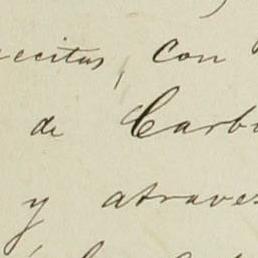 ecitas, con
de Carb
y atraves